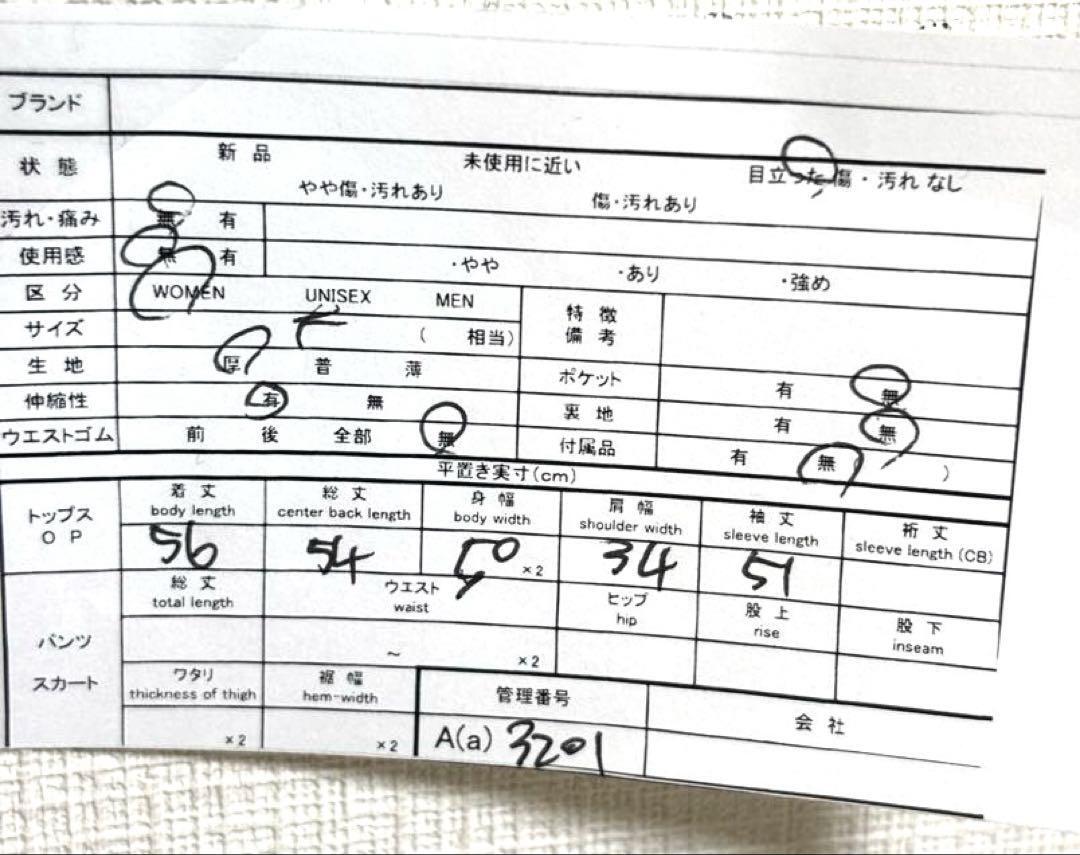 ブランド
状態 新品 未使用に近い 目立った傷・汚れなし
やや傷・汚れあり 傷・汚れあり
汚れ・痛み 無 有
使用感 無 有 ・やや ・あり ・強め
区分 WOMEN UNISEX MEN
特徴
備考
サイズ ( 相当)
生地 厚 普 薄
ポケット 有 無
伸縮性 有 無
裏地 有 無
ウエストゴム 前 後 全部 無
付属品 有 無 )
平置き実寸(cm)
トップス
OP
着丈 総丈 身幅 肩幅 袖丈 裄丈
body length center back length body width shoulder width sleeve length sleeve length (CB)
56 54 50 ×2 34 51
パンツ
スカート
総丈 ウエスト ヒップ 股上 股下
total length waist hip rise inseam
~ ×2
ワタリ 裾幅 管理番号 会社
thickness of thigh hem-width
×2 ×2 A(a) 3201